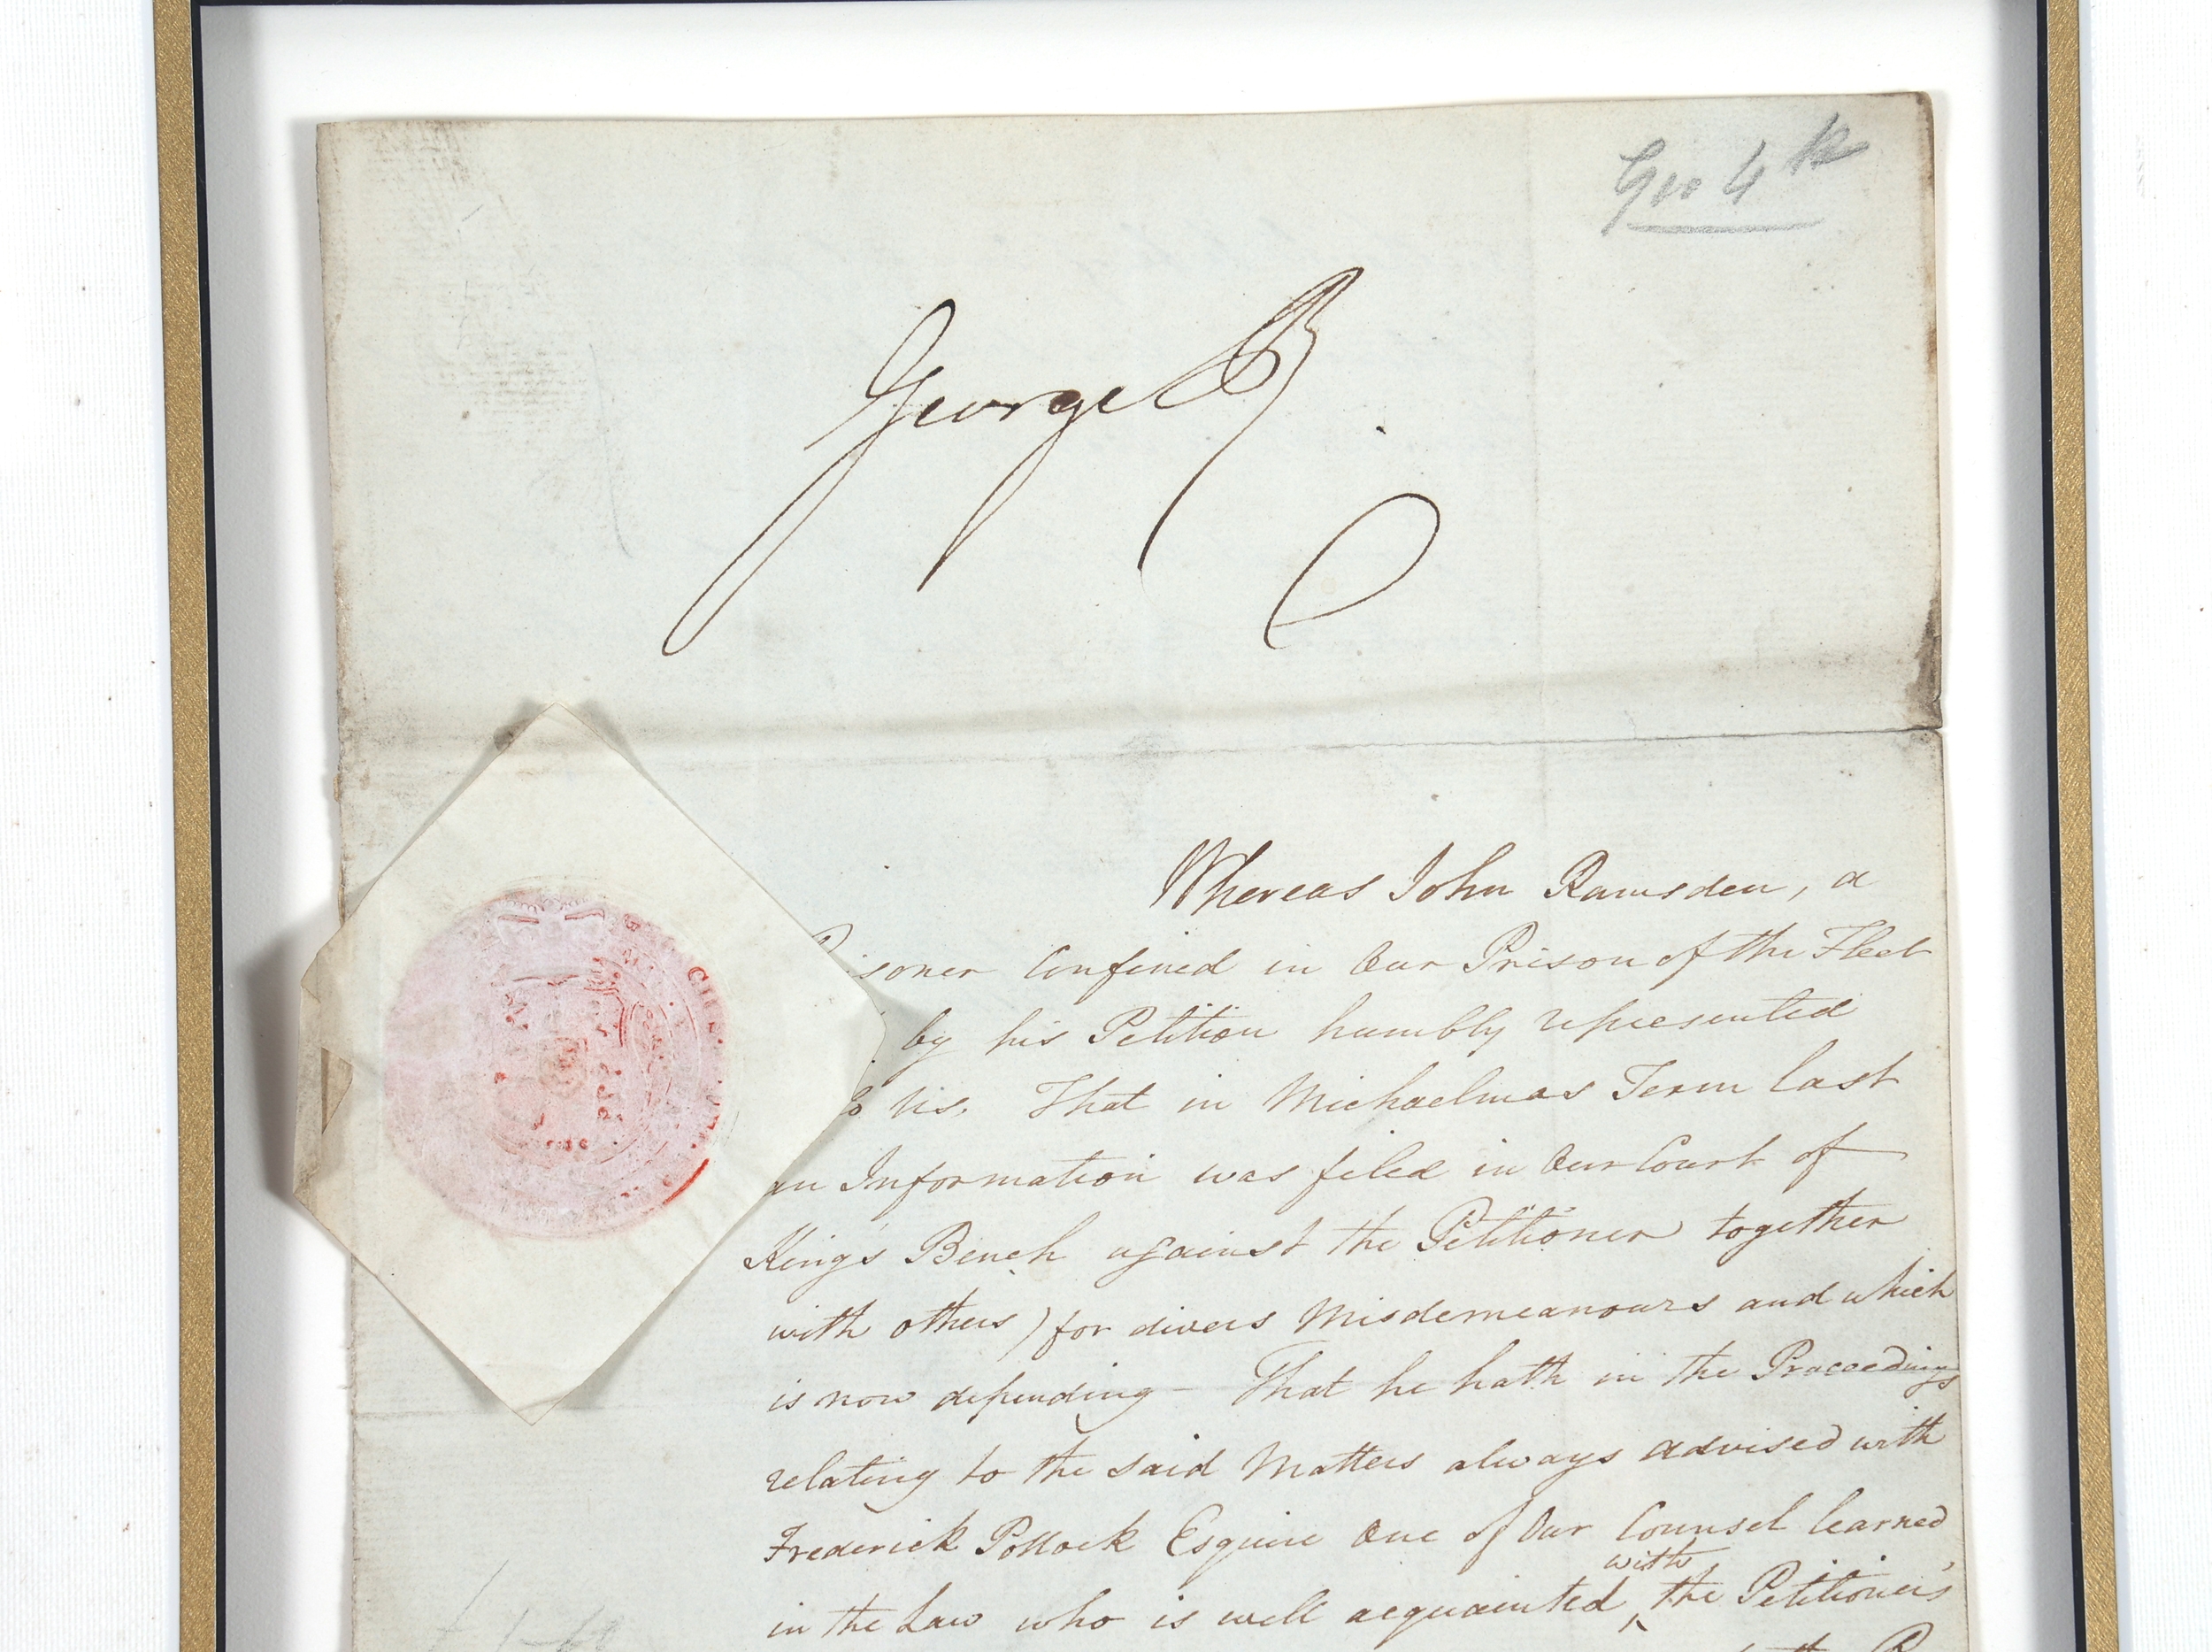 Geo 4th
George R
Whereas John Ramsden, a
isoner Confined in Our Prison of the Fleet
by his Petition humbly represented
to Us, That in Michaelmas Term last
an Information was filed in Our Court of
King's Bench against the Petitioner together
with others) for divers Misdemeanours and which
is now depending – That he hath in the Proceedings
relating to the said Matters always advised with
Frederick Pollock Esquire One of Our Counsel learned
with
in the Law who is well acquainted ‸ the Petitioner's